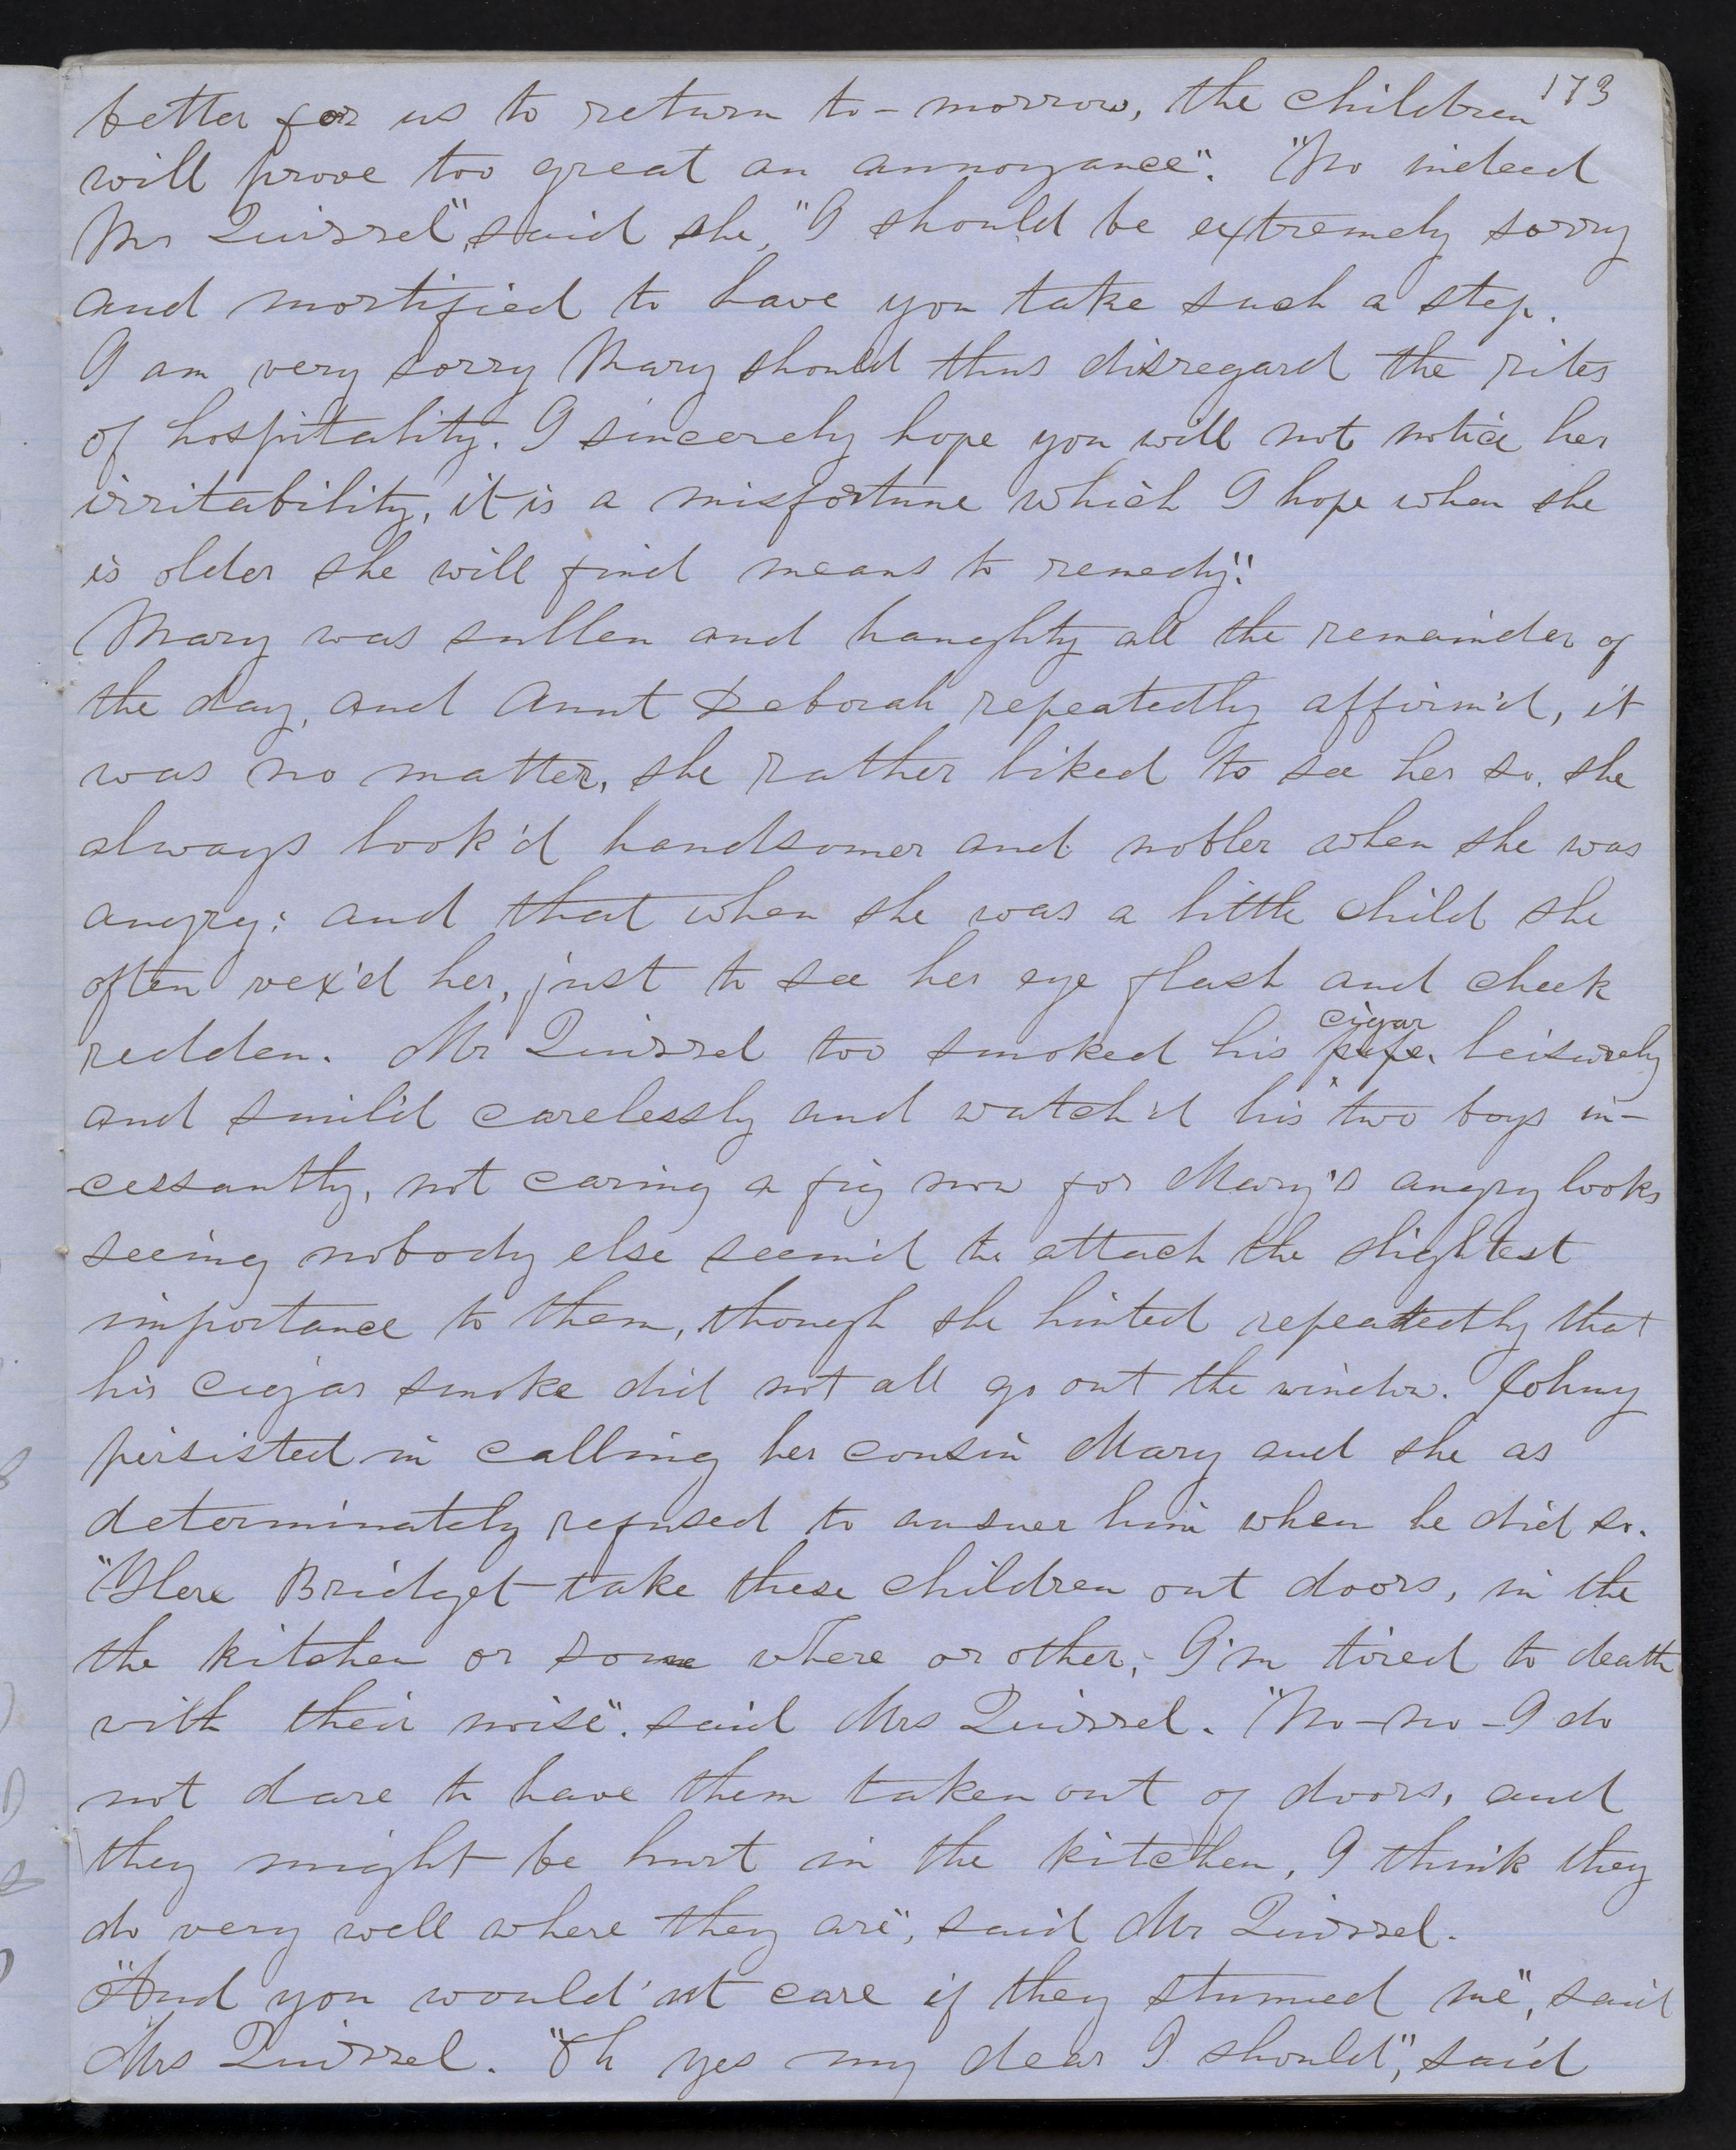 173
better for us to return to-morrow, the children
will prove too great an annoyance". "No indeed
Mr Quirrel", said she, "I should be extremely sorry
and mortified to have you take such a step.
I am very sorry Mary should thus disregard the rites
of hospitality. I sincerely hope you will not notice her
irritability, it is a misfortune which I hope when she
is older she will find means to remedy".
Mary was sullen and haughty all the remainder of
the day, and Aunt Deborah repeatedly affirm'd, it
was no matter, she rather liked to see her so. she
always look'd handsomer and nobler when she was
angry; and that when she was a little child she
often vex'd her, just to see her eye flash and cheek
redden. Mr Quirrel too smoked his pipe cigar leisurely
and smil'd carelessly and watch'd his two boys in-
cessantly, not caring a fig now for Mary's angry looks
seeing nobody else seem'd to attach the slightest
importance to them, though she hinted repeatedly that
his cigar smoke did not all go out the window. Johny
persisted in calling her cousin Mary and she as
determinately refused to answer him when he did so.
"Here Bridget take these children out doors, in the
the kitchen or some where or other, I'm tired to death
with their noise". said Mrs Quirrel. "No-no-I do
not dare to have them taken out of doors, and
they might be hurt in the kitchen, I think they
do very well where they are", said Mr Quirrel.
"And you would'nt care if they stunned me", said
Mrs Quirrel. "Oh yes my dear I should", said